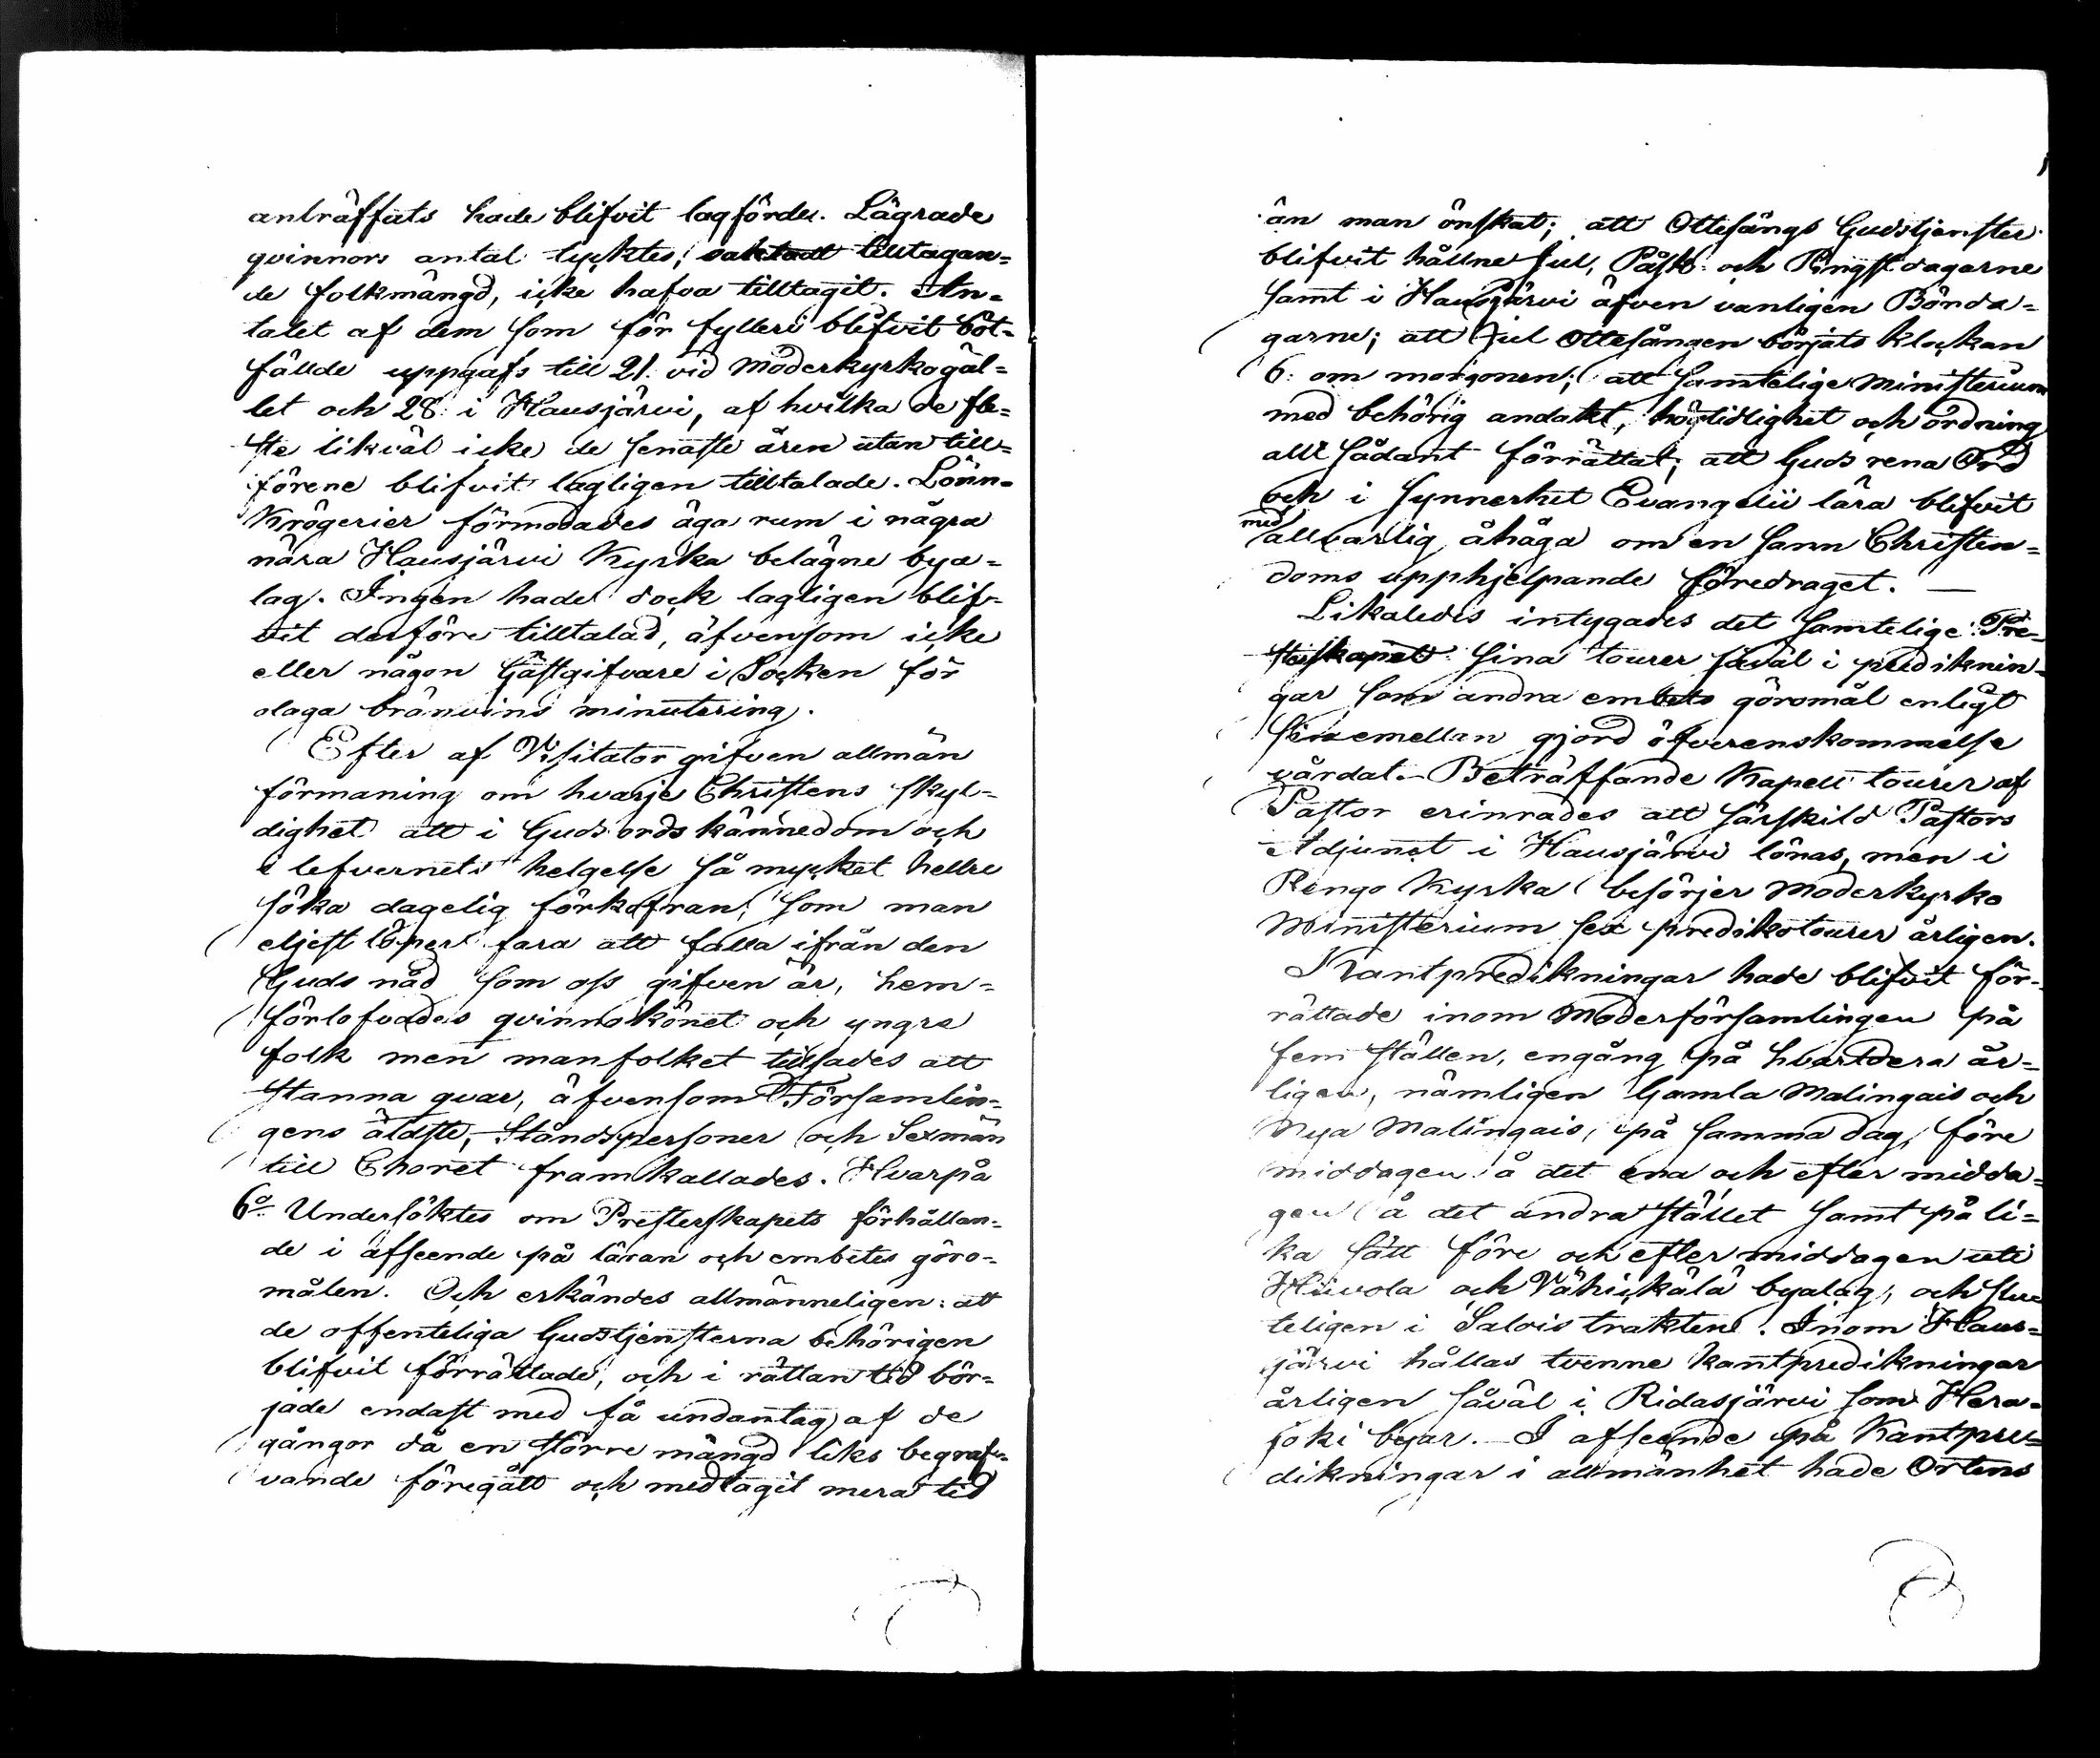 anträffats hade blifvit lagförde. Lägrade
qvinnors antal tycktes, oaktadt tilltagan=
de folkmängd, icke hafva tilltagit. An=
talet af dem som för fylleri blifvit böt=
fällde uppgafs till 21. vid moderkyrkogäl=
let och 28. i Hausjärvi, af hvilka de fle=
ste likväl icke de senaste åren utan till=
förene blifvit lagligen tilltalade. Lönn=
krögerier förmodades äga rum i några
nära Hausjärvi Kyrka belägne bya=
lag. Ingen hade dock lagligen blif=
vit derföre tilltalad, äfvensom icke
eller någon Gästgifvare i Socken för
olaga bränvins minutering.
Efter af Visitator gifven allmän
förmaning om hvarje Christens skyl=
dighet att i Guds ords kännedom och
i lefvernets helgelse så mycket hellre
söka dagelig förkofran, som man
eljest löper fara att falla ifrån den
Guds nåd som oss gifven är, hem=
förlofvades qvinnokönet och yngre
folk men manfolket tillsades att
stanna qvar, äfvensom Församlin=
gens äldste, Ståndspersoner och Sexmän
till Choret framkallades. Hvarpå
6o Undersöktes om Presterskapets förhållan=
de i afseende på läran och embetes göro=
målen. Och erkändes allmänneligen: att
de offenteliga Gudstjensterna behörigen
blifvit förrättade, och i rättan tid bör=
jade endast med få undantag af de
gångor då en större mängd liks begraf=
vande föregått och medtagit mera tid
än man önskat; att Ottesångs Gudstjenster
blifvit hållne Jul, Påsk- och Pingst dagarne
samt i Hausjärvi äfven vanligen Bönda=
garne; att Jul ottesången börjats klockan
6. om morgonen; att samtelige ministerium
med behörig andakt, högtidlighet och ordning
allt sådant förrättat; att Guds rena Ord
och i synnerhet Evangelii lära blifvit
med allvarlig åhåga om en sann Christen=
doms upphjelpande föredraget. —
Likaledes intygades det samtelige Pre=
sterskapet sina tourer såväl i prediknin=
gar som andra embets göromål enligt
sinemellan gjord öfverenskommelse
vårdat. Beträffande Kapell tourer af
Pastor erinrades att särskild Pastors
Adjunct i Hausjärvi lönas, men i
Rengo Kyrka besörjer moderkyrko
Ministerium sex predikotourer årligen.
Kantpredikningar hade blifvit för=
rättade inom Moderförsamlingen på
fem ställen, engång på hvartdera år=
ligen, nämligen Gamla Malingais och
Nya Malingais, på samma dag, före
middagen å det ena och efter midda=
gen å det andra stället samt på li=
ka sätt före och efter middagen uti
Hiivola och Vähickälä byalag, och slu
teligen i Salois trakten. Inom Haus=
järvi hållas tvenne kantpredikningar
årligen såväl i Ridasjärvi som Hera=
joki byar. I afseende på Kantpre=
dikningar i allmänhet hade Ortens